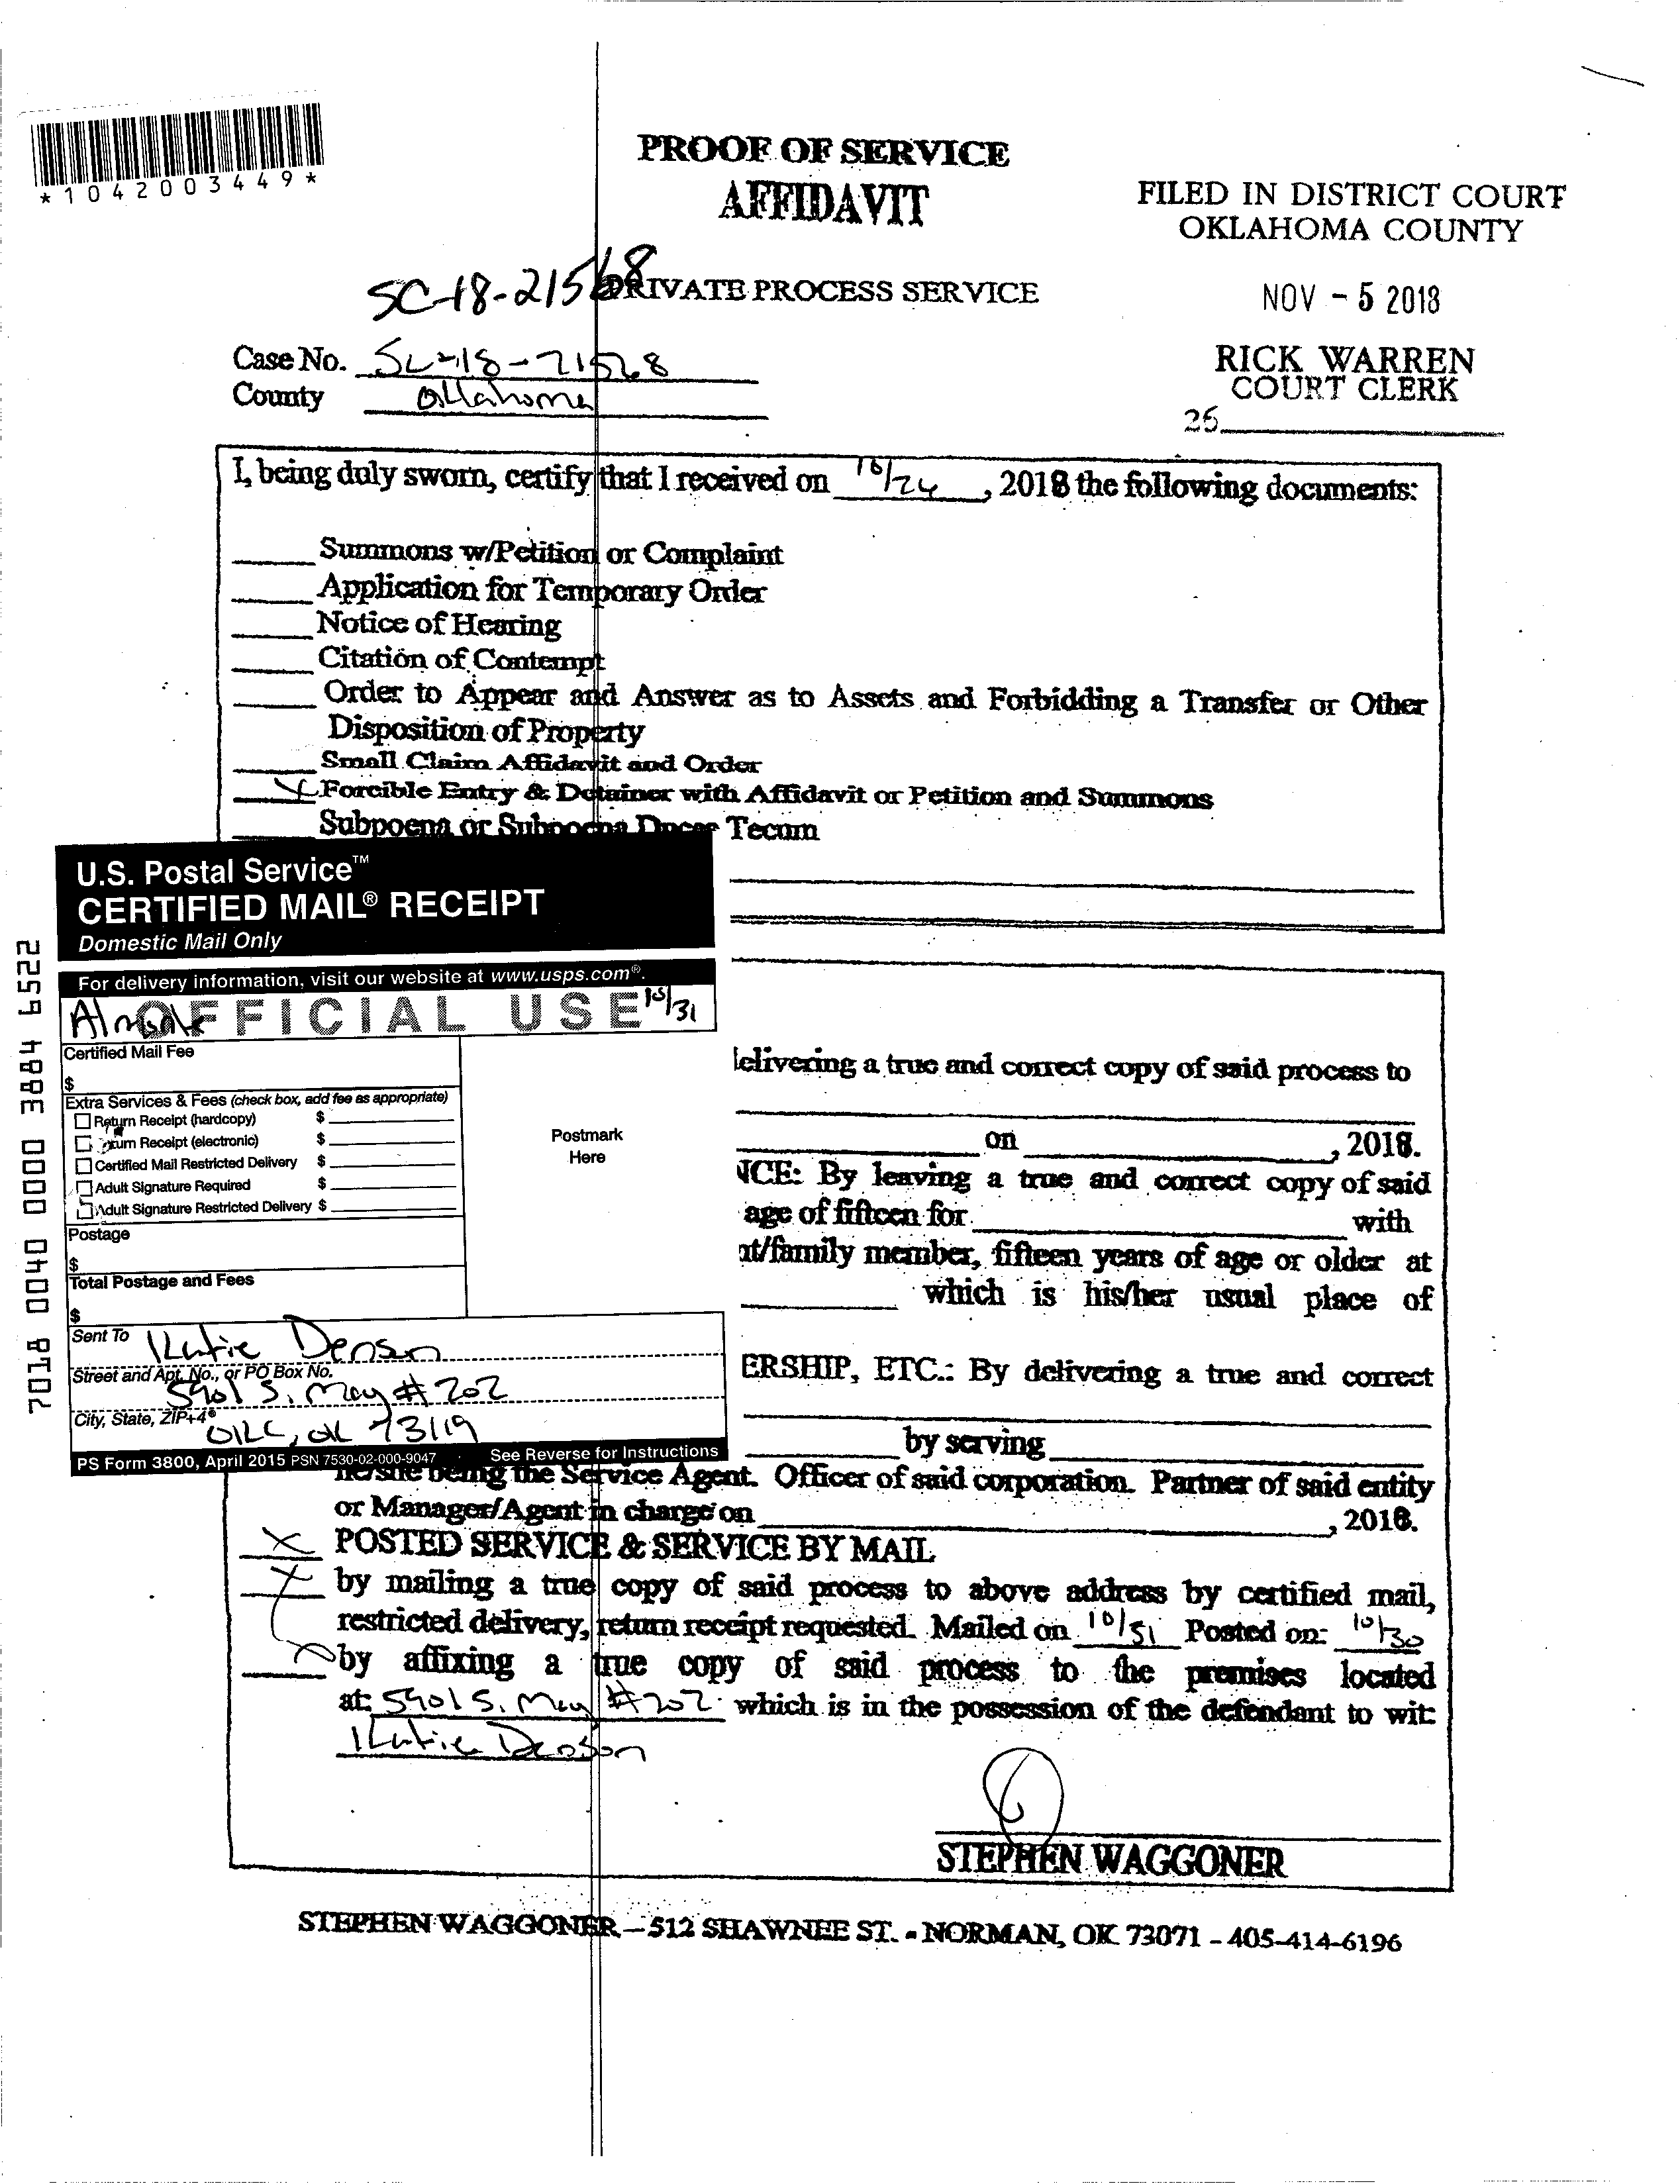 *1042003449*
PROOF OF SERVICE
AFFIDAVIT
FILED IN DISTRICT COURT
OKLAHOMA COUNTY
SC-18-21568
PRIVATE PROCESS SERVICE
NOV - 5 2018
Case No. SC-18-21568
County Oklahoma
RICK WARREN
COURT CLERK
I, being duly sworn, certify that I received on 10/24, 2018 the following documents:
Summons w/Petition or Complaint
Application for Temporary Order
Notice of Hearing
Citation of Contempt
Order to Appear and Answer as to Assets and Forbidding a Transfer or Other
Disposition of Property
Small Claim Affidavit and Order
X Forcible Entry & Detainer with Affidavit or Petition and Summons
Subpoena or Subpoena Duces Tecum
U.S. Postal Service™
CERTIFIED MAIL® RECEIPT
Domestic Mail Only
For delivery information, visit our website at www.usps.com®.
OFFICIAL USE
10/31
7018 0040 0000 3884 6522
Certified Mail Fee
$
Extra Services & Fees (check box, add fee as appropriate)
Return Receipt (hardcopy) $
Receipt (electronic) $
Certified Mail Restricted Delivery $
Adult Signature Required $
Adult Signature Restricted Delivery $
Postage
$
Total Postage and Fees
$
Postmark
Here
Sent To Katie Denson
Street and Apt. No., or PO Box No.
5901 S. May #202
City, State, ZIP+4®
OKC, OK 73119
PS Form 3800, April 2015 PSN 7530-02-000-9047 See Reverse for Instructions
elivering a true and correct copy of said process to
on , 2018.
NCE: By leaving a true and correct copy of said
age of fifteen for with
nt/family member, fifteen years of age or older at
which is his/her usual place of
ERSHIP, ETC.: By delivering a true and correct
by serving
he/she being the Service Agent. Officer of said corporation. Partner of said entity
or Manager/Agent in charge on , 2018.
X POSTED SERVICE & SERVICE BY MAIL
X by mailing a true copy of said process to above address by certified mail,
restricted delivery, return receipt requested. Mailed on 10/31 Posted on: 10/30
X by affixing a true copy of said process to the premises located
at: 5901 S. May #202 which is in the possession of the defendant to wit:
Katie Denson
STEPHEN WAGGONER
STEPHEN WAGGONER – 512 SHAWNEE ST. - NORMAN, OK 73071 - 405-414-6196